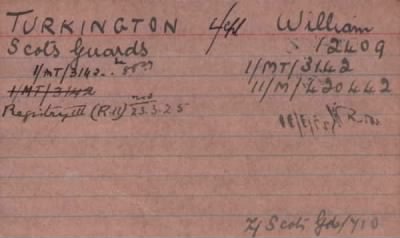 TURKINGTON L/Cpl William
Scots Guards 12409
1/MT/3142 1/MT/3142
1/MT/3142 11/M/420442
Registry III (R.11) 23.3.25
Z/Scots Gds/710